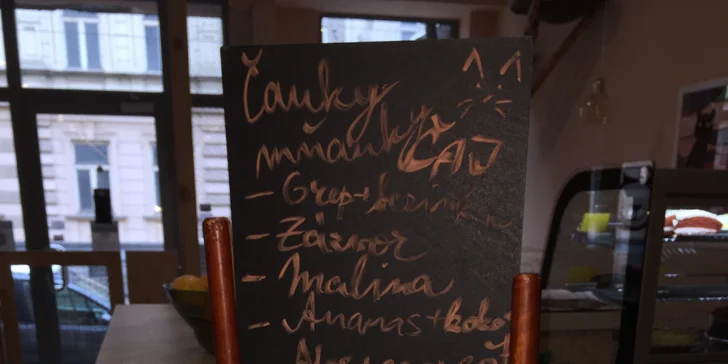 Čauky
mňauky
ČAJ
- Grep + bezinka
- Zázvor
- Malina
- Ananas + koko